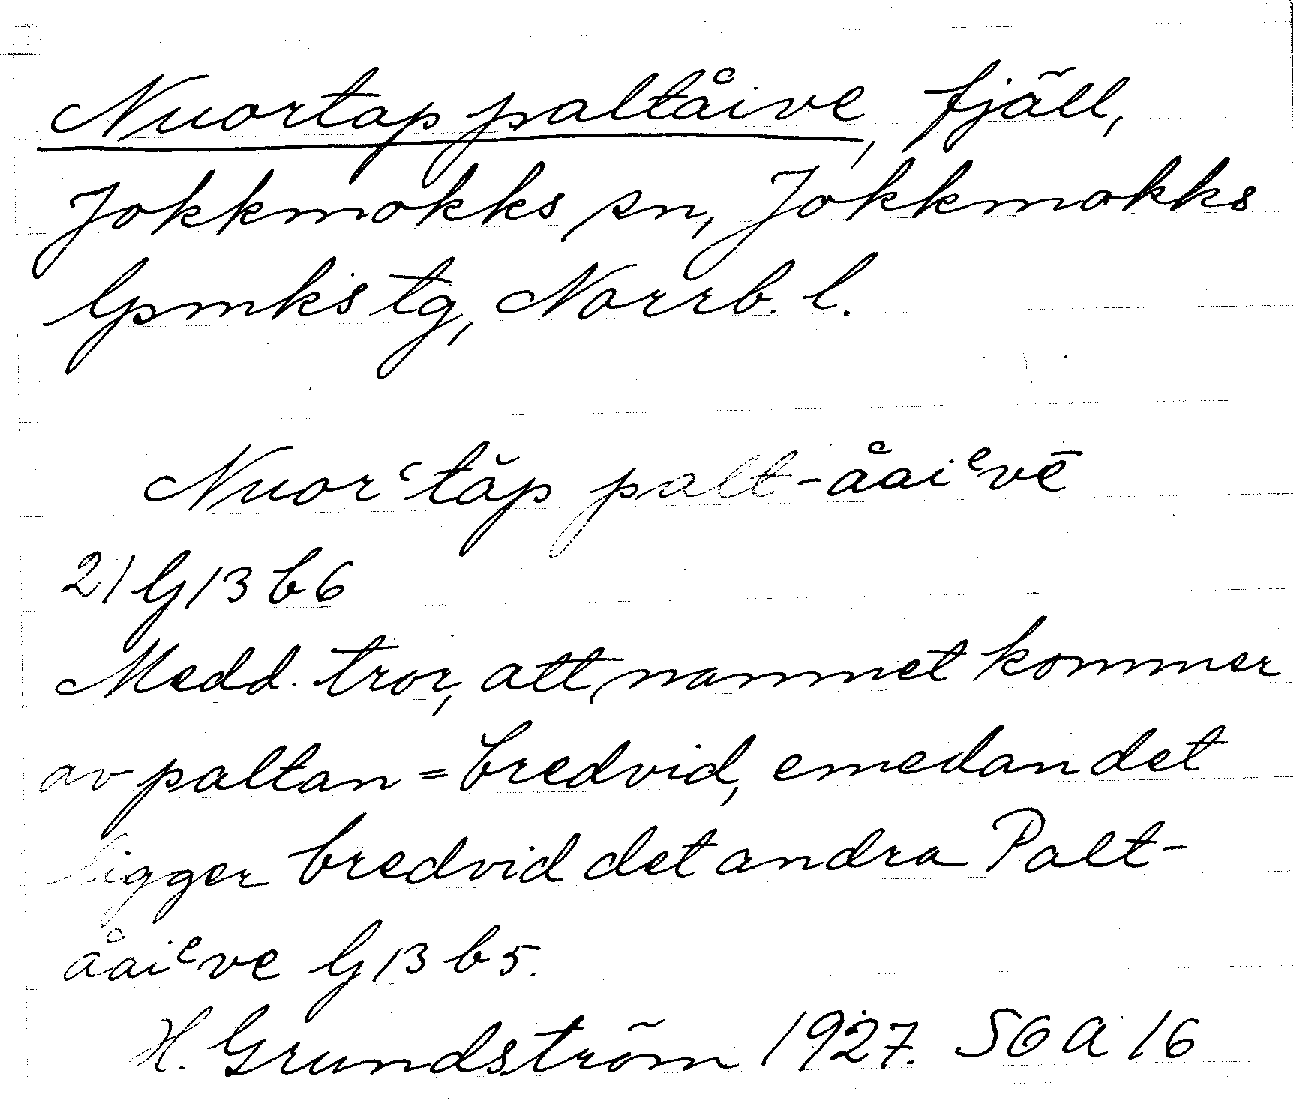 Nuortap paltåive, fjäll,
Jokkmokks sn, Jokkmokks
lpmks tg, Norrb. l.
Nuorʿtăp palt-åaiᵉvē
2) G 13 b 6
Medd. tror, att namnet kommer
av paltan = bredvid, emedan det
ligger bredvid det andra Palt-
åaiᵉve G 13 b 5.
H. Grundström 1927. SOA 16